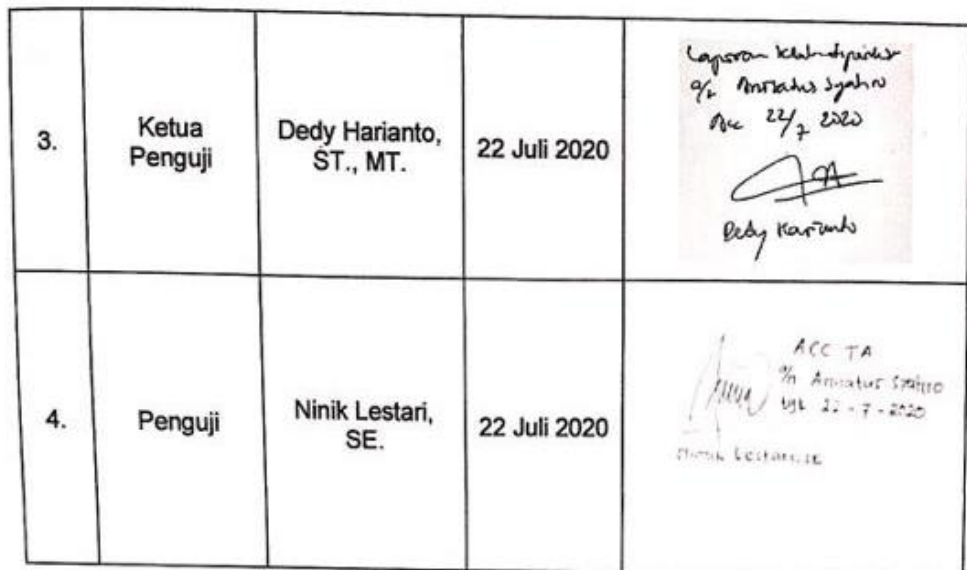 3.
Ketua
Penguji
Dedy Harianto,
ST., MT.
22 Juli 2020
Laporan
a/n Syahro
Acc 22/7 2020
Dedy Harianto
4.
Penguji
Ninik Lestari,
SE.
22 Juli 2020
ACC TA
a/n Annatus Syahro
tgl 22 - 7 - 2020
Ninik Lestari, SE